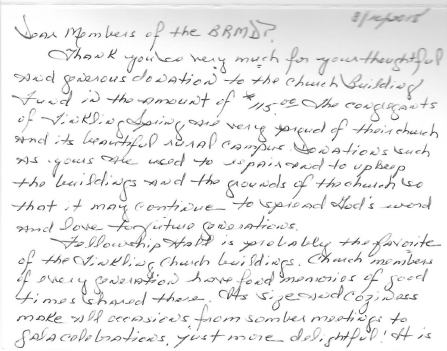 3/16/2015
Dear Members of the BRMD?
Thank you so very much for your thoughtful
and generous donation to the Church Building
Fund in the amount of $115.00. The congregants
of Tinkling Spring are very proud of their church
and its beautiful rural campus. Donations such
as yours are used to repair and to upkeep
the buildings and the grounds of the church so
that it may continue to spread God's word
and love to future generations.
Fellowship Hall is probably the favorite
of the Tinkling Church buildings. Church members
of every generation have fond memories of good
times shared there. Its size and coziness
make all occasions from somber meetings to
gala celebrations, just more delightful! It is